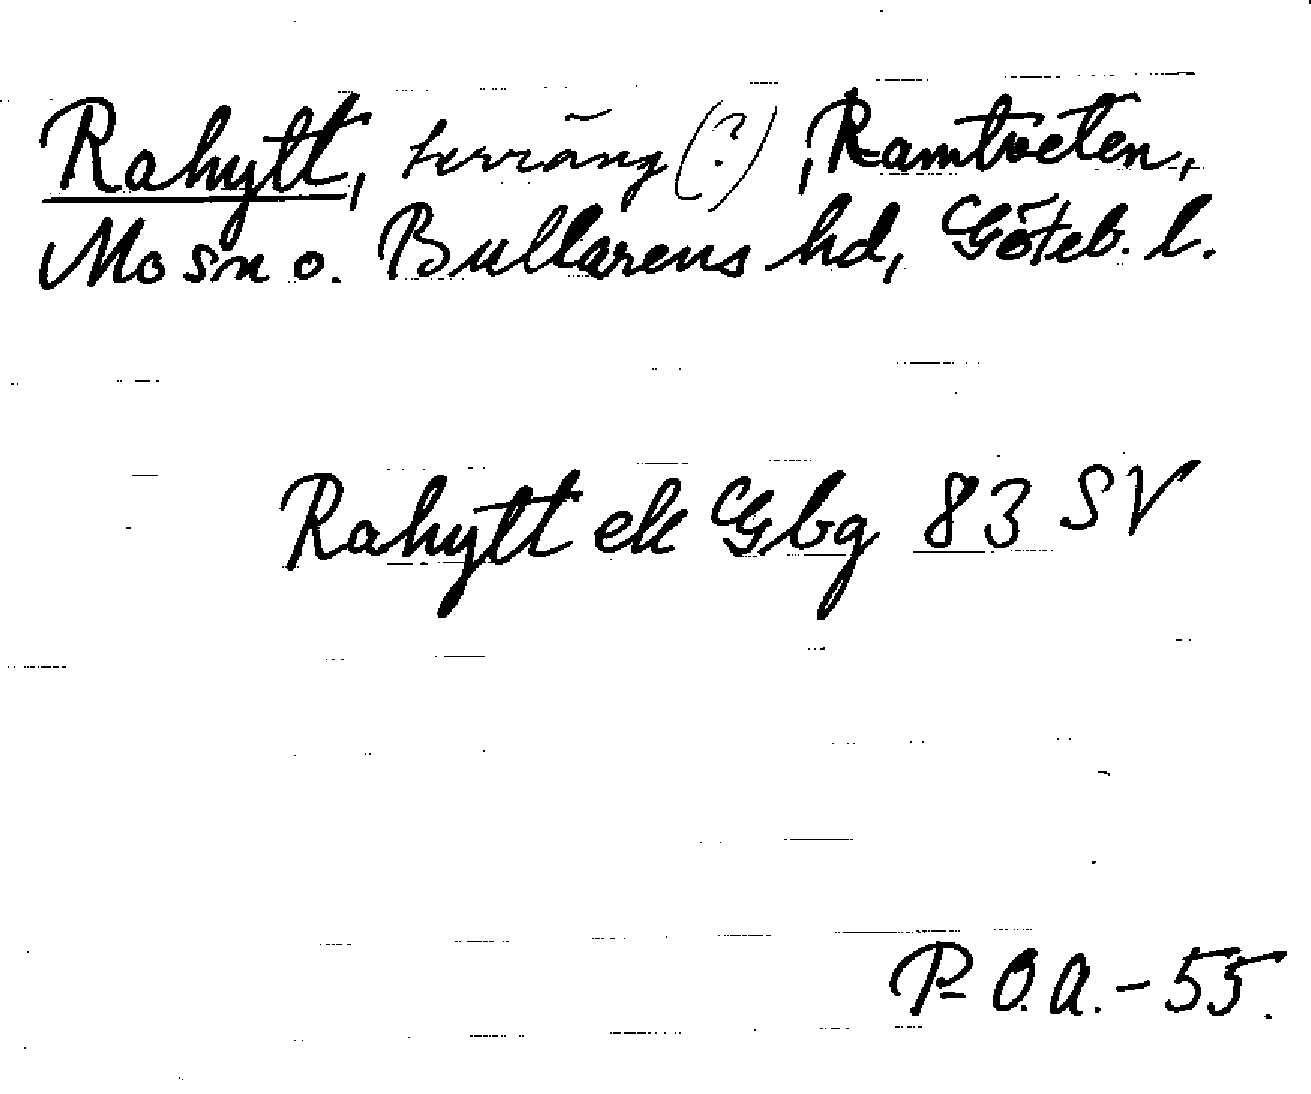 Rahytt, terräng (?), Ramtveten,
Mo sn o. Bullarens hd, Göteb. l.
Rahytt ek Gbg 83 SV
P-O.A. - 55.